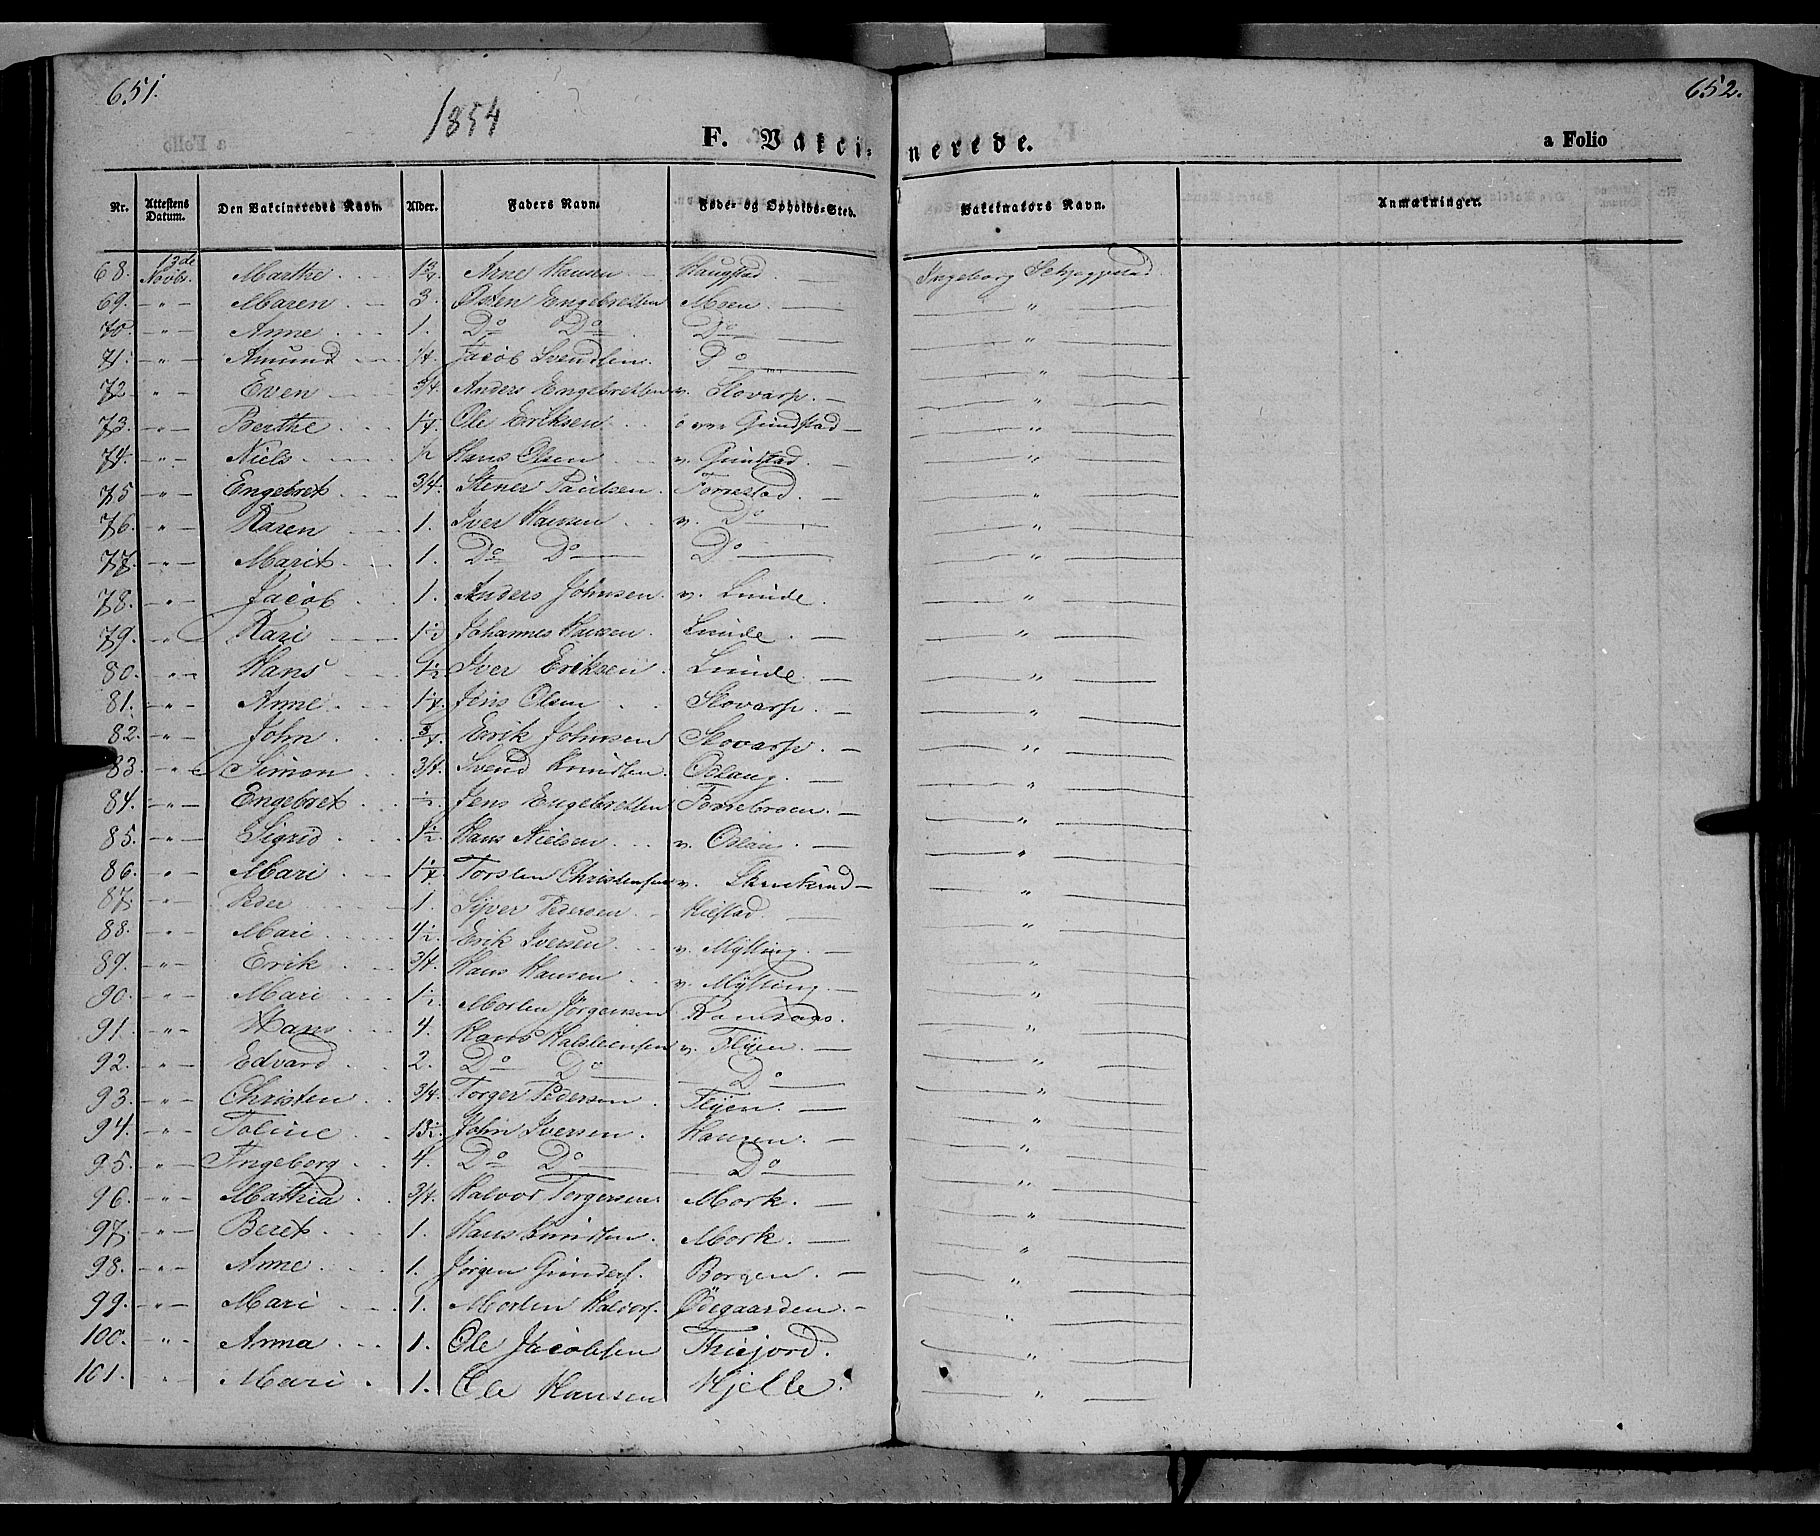 651.
652.
1854
F. Vakcinerede.
a Folio
Nr. Attestens Datum. Den Vakcineredes Navn. Alder. Faders Navn. Føde- og Opholds-Sted. Vakcinators Navn. Anmærkninger.
68. 13de Novbr. Marthe 1½ Arne Hansen Haugstad Ingeborg Schjeggestad
69. -"- Maren 3. Østen Engebretsen Moen "
70. -"- Anne 1. Do Do Do "
71. -"- Amund ¼. Jacob Svendsen. Do "
72 -"- Even ¾. Anders Engebretsen v. Slovarp. "
73. -"- Berthe 1¼ Ole Eriksen Gunstad "
74. -"- Niels ½ Hans Olsen v. Gunstad. "
75 -"- Engebret ¾. Stener Paulsen. Forrestad. "
76. -"- Karen 1. Iver Hansen v. Do "
77. -"- Marit 1. Do Do Do "
78. -"- Jacob 1. Anders Johnsen. v. Lunde. "
79. -"- Kari 1½ Johannes Hansen. Lunde. "
80. -"- Hans Iver Eriksen Lunde. "
81. -"- Anne 1¼. Jens Olsen Slovarp. "
82. -"- John ¾. Erik Johnsen Slovarp. "
83. -"- Simon ¾. Svend Knudsen. Oslaug. "
84. -"- Engebret ½. Jens Engebretsen "
85. -"- Sigrid 1½. Hans Nielsen v. Oslau. "
86. -"- Mari 1¼ Torsten Christensen v. Skrukrud "
87. -"- Peder 1. Siver Pedersen Kiestad. "
88. -"- Mari 4½. Erik Iversen v. Mÿtting. "
89. -"- Erik ¾. Hans Hansen v. Mÿtting. "
90. -"- Mari 1½. Morten Jørgensen "
91. -"- Hans 4. Hans Halsteensen v. Flÿen. "
92. -"- Edvard 2. Do Do Do "
93. -"- Christen ¾. Torger Pedersen. Flÿen. "
94. -"- Toline 13½. John Iversen. Haugen. "
95. -"- Ingeborg 4. Do Do Do "
96. -"- Mathia ¾. Halvor Torgersen. Mork. "
97. -"- Beret 1. Hans Knudsen. Mork. "
98. -"- Anne 1. Jørgen Gunders. Borgen. "
99. -"- Mari 1. Morten Halvors. Ødegaarden. "
100. -"- Anna 1. Ole Jacobsen "
101. " Mari 1. Ole Hansen Hjelle. "